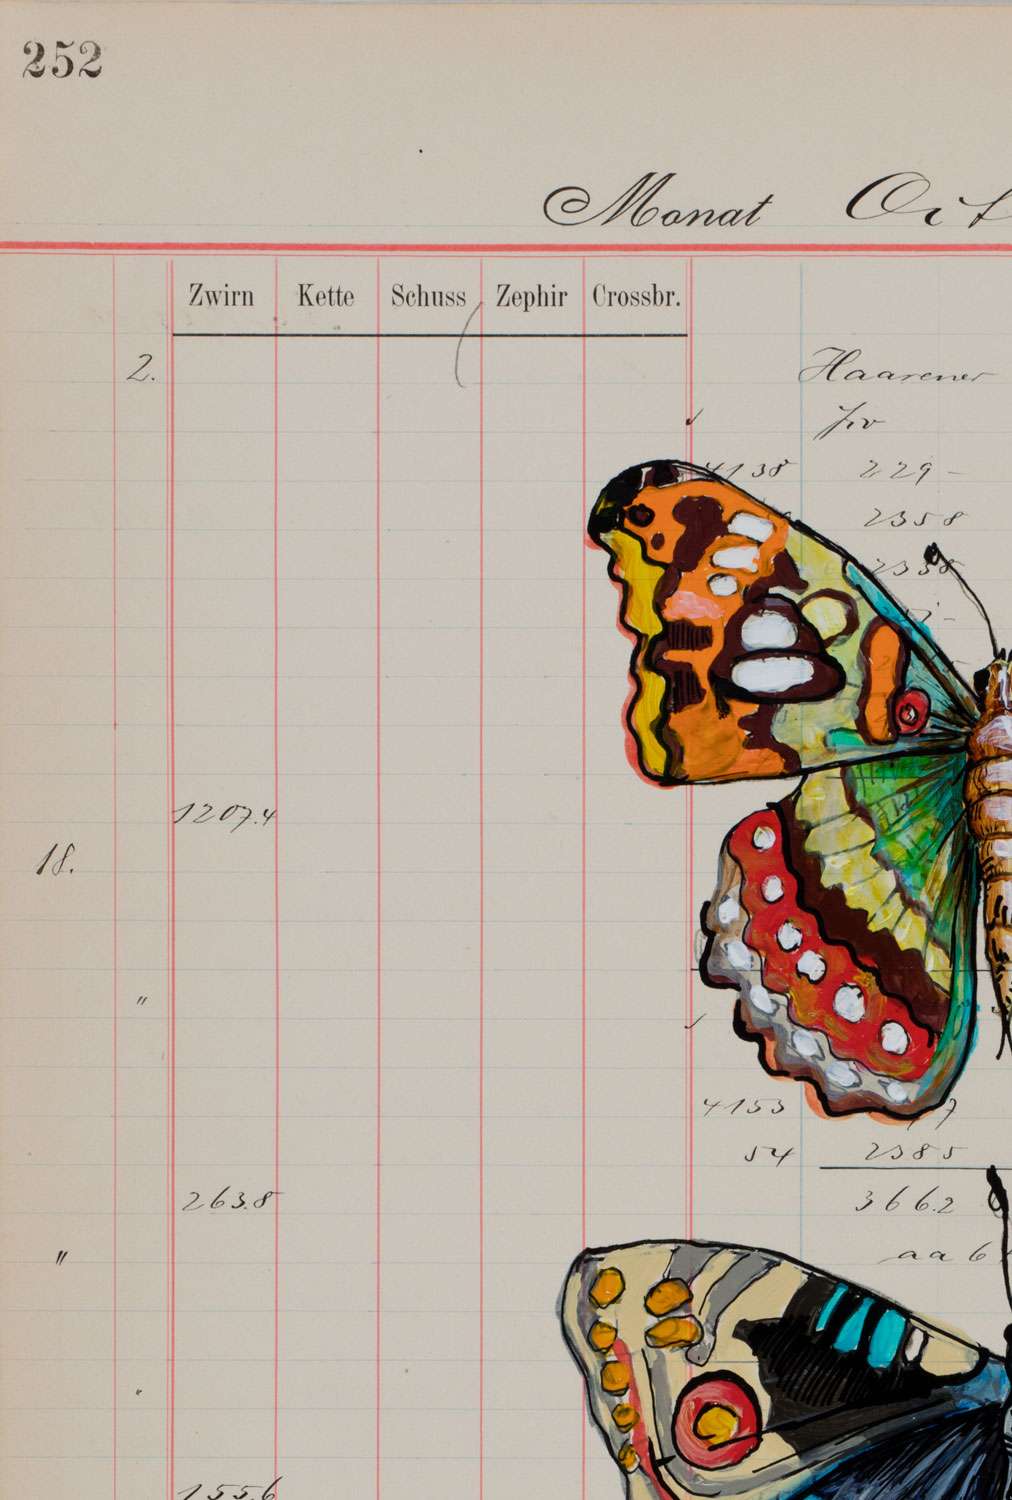 252
Monat Oct
Zwirn Kette Schuss Zephir Crossbr.
2. Haarener
4138 229 -
2358
2338
1207.4
18.
"
4153
54 2385
263.8 366.2
" aa 6
"
155.6